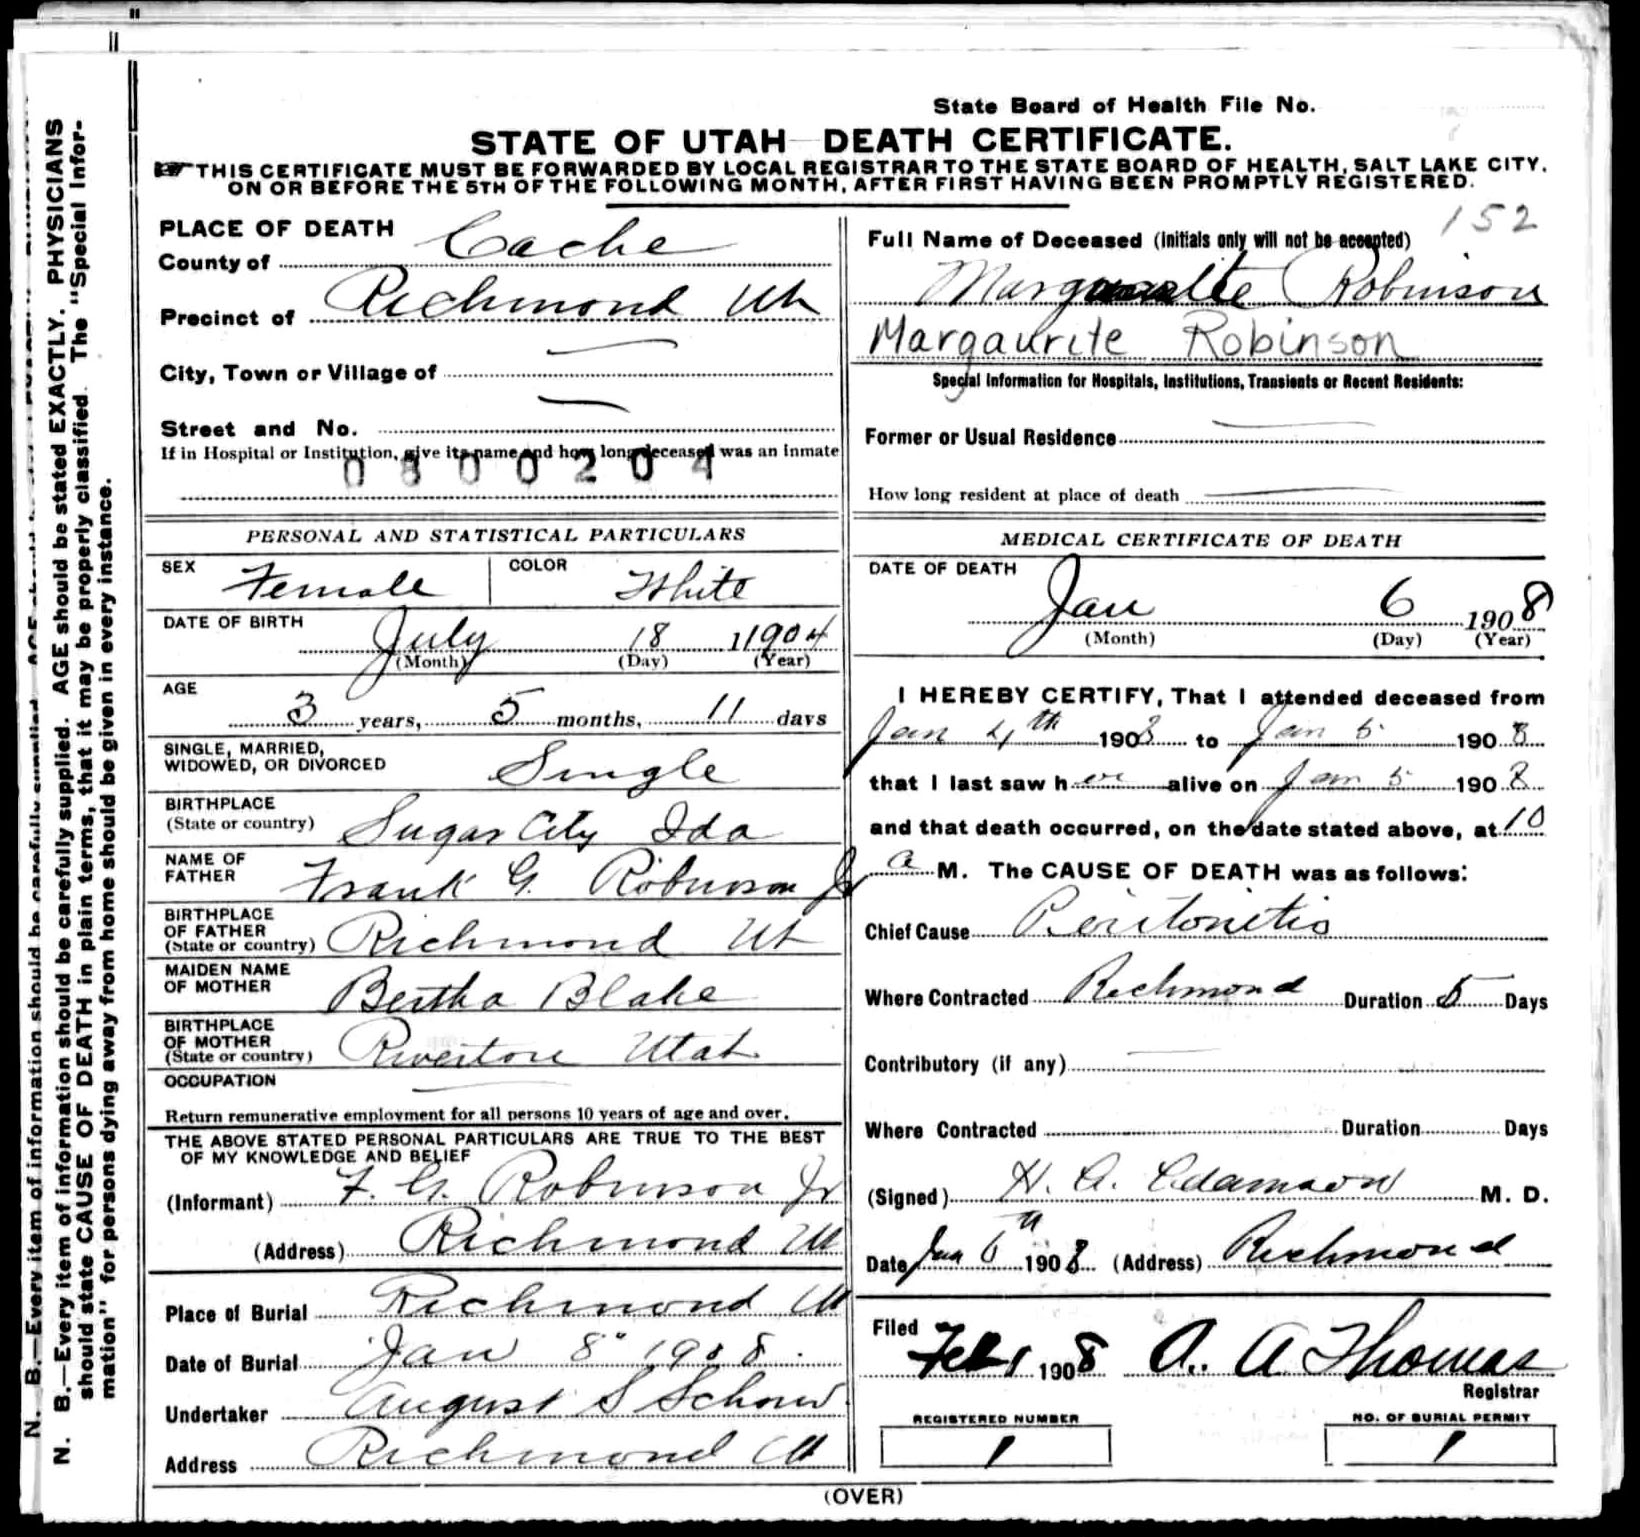 State Board of Health File No.
STATE OF UTAH DEATH CERTIFICATE.
THIS CERTIFICATE MUST BE FORWARDED BY LOCAL REGISTRAR TO THE STATE BOARD OF HEALTH, SALT LAKE CITY,
ON OR BEFORE THE 5TH OF THE FOLLOWING MONTH, AFTER FIRST HAVING BEEN PROMPTLY REGISTERED.
N. B.—Every item of information should be carefully supplied. AGE should be stated EXACTLY. PHYSICIANS
should state CAUSE OF DEATH in plain terms, that it may be properly classified. The "Special Infor-
mation" for persons dying away from home should be given in every instance.
N. B.—Every item of information should be carefully
PLACE OF DEATH
County of Cache
Precinct of Richmond Ut
City, Town or Village of
Street and No.
If in Hospital or Institution, give its name and how long deceased was an inmate
0800204
PERSONAL AND STATISTICAL PARTICULARS
SEX Female COLOR White
DATE OF BIRTH July 18 1904
(Month) (Day) (Year)
AGE
3 years, 5 months, 11 days
SINGLE, MARRIED,
WIDOWED, OR DIVORCED Single
BIRTHPLACE
(State or country) Sugar City Ida
NAME OF
FATHER Frank G. Robinson Jr
BIRTHPLACE
OF FATHER
(State or country) Richmond Ut
MAIDEN NAME
OF MOTHER Bertha Blake
BIRTHPLACE
OF MOTHER
(State or country) Riverton Utah
OCCUPATION
Return remunerative employment for all persons 10 years of age and over.
THE ABOVE STATED PERSONAL PARTICULARS ARE TRUE TO THE BEST
OF MY KNOWLEDGE AND BELIEF
(Informant) F. G. Robinson Jr
(Address) Richmond Ut
Place of Burial Richmond Ut
Date of Burial Jan 8" 1908.
Undertaker August S Schow
Address Richmond Ut
152
Full Name of Deceased (Initials only will not be accepted)
Robinson
Margaurite Robinson
Special Information for Hospitals, Institutions, Transients or Recent Residents:
Former or Usual Residence
How long resident at place of death
MEDICAL CERTIFICATE OF DEATH
DATE OF DEATH
Jan 6 1908
(Month) (Day) (Year)
I HEREBY CERTIFY, That I attended deceased from
Jan 4th 1908 to Jan 5 1908
that I last saw her alive on Jan 5 1908
and that death occurred, on the date stated above, at 10
a M. The CAUSE OF DEATH was as follows:
Chief Cause Peritonitis
Where Contracted Richmond Duration 5 Days
Contributory (if any)
Where Contracted Duration Days
(Signed) H. A. Adamson M. D.
Date Jan 6th 1908 (Address) Richmond
Filed Feb 1 1908 A. A Thomas
Registrar
REGISTERED NUMBER NO. OF BURIAL PERMIT
1 1
(OVER)